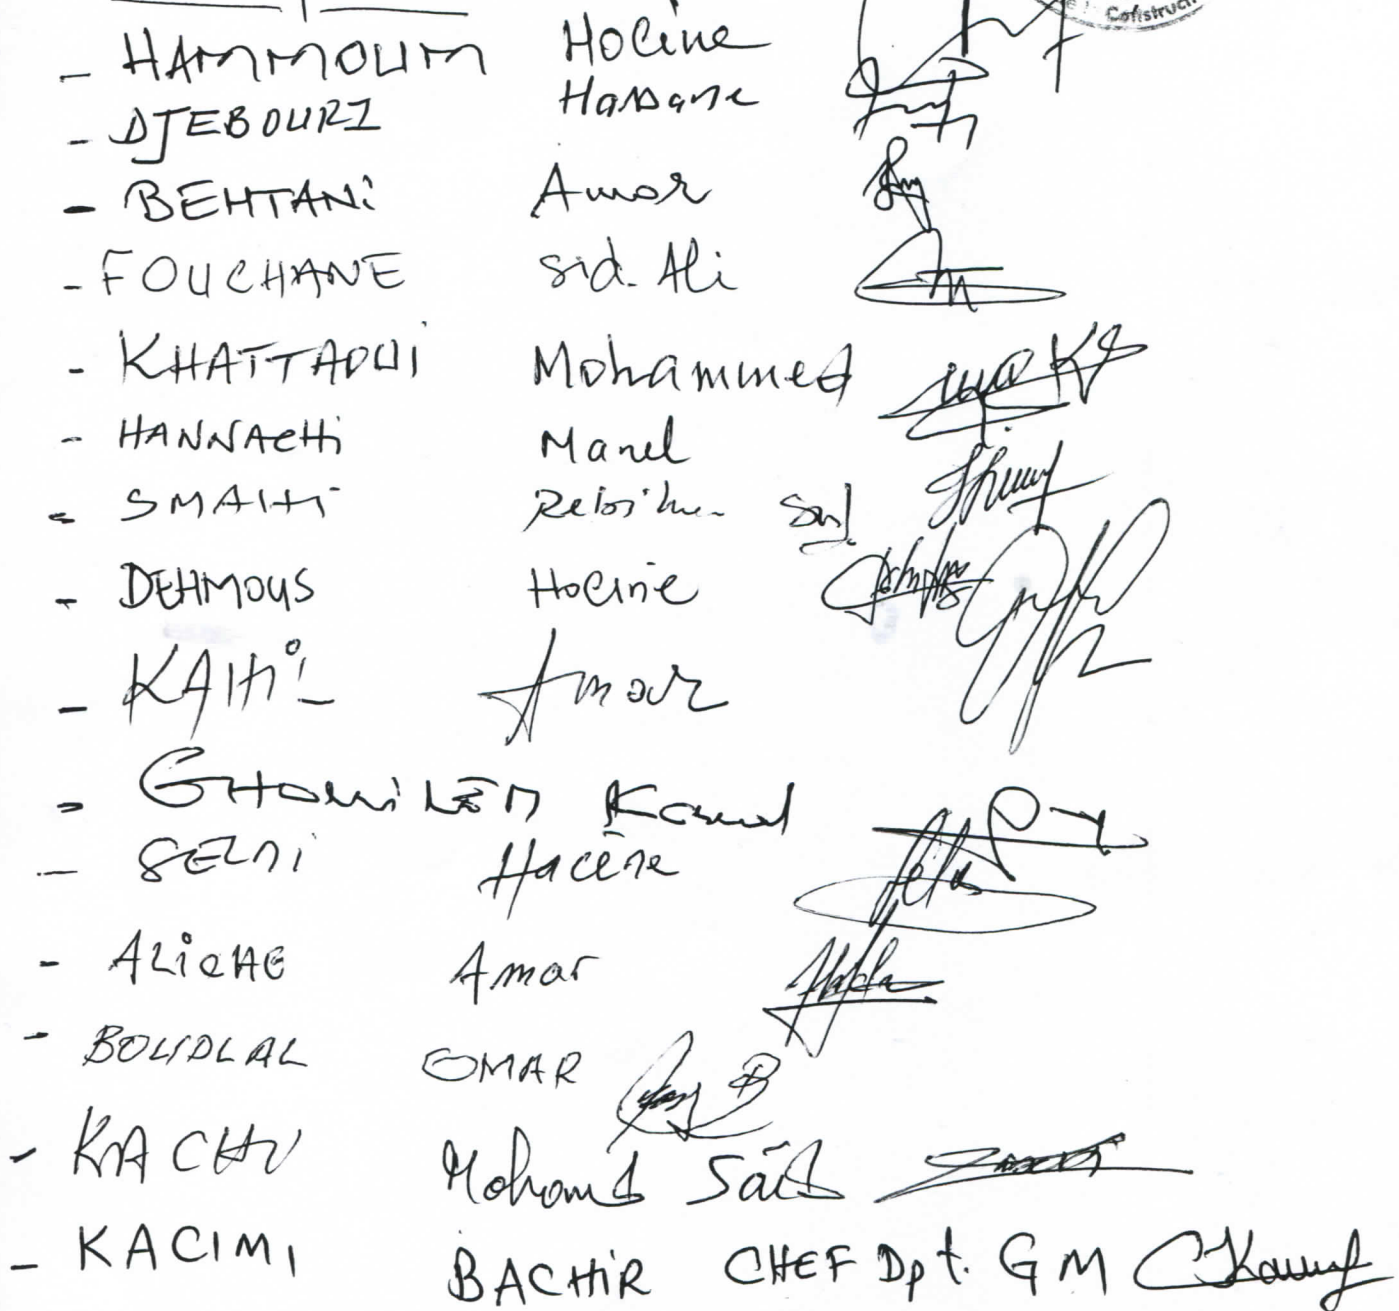 Construct
- HAMMOUM Hocine
- DJEBOURI Hassane
- BEHTANi Amor
- FOUCHANE Sid. Ali
- KHATTAOUi Mohammed
- HANNACHi Manel
- SMAIHi
- DEHMOUS Hocine
- KAHiL Amar
- GHOMiLEM Kamel
- SELMi Hacène
- ALiCHE Amar
- BOUDLAL OMAR
- KACHI Mohamed Said
- KACIMI BACHiR CHEF Dpt. GM